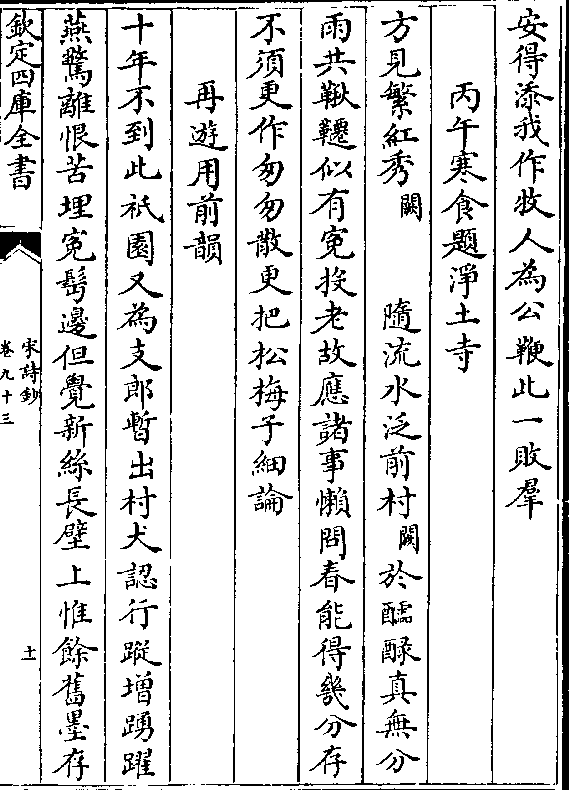 安得添我作牧人為公鞭此一敗羣
丙午寒食題淨土寺
方見繁紅秀闕 隨流水泛前村闕於醽醁真無分
雨共鞦韆似有寃投老故應諸事懶問春能得幾分存
不須更作匆匆散更把松梅子細論
再遊用前韻
十年不到此祇園又為支郎暫出村犬認行蹤增踴躍
燕驚離恨苦埋寃髩邊但覺新絲長壁上惟餘舊墨存
欽定四庫全書
宋詩鈔
卷九十三
十一